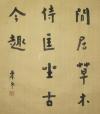 閒居草木
侍匡坐古
今趣